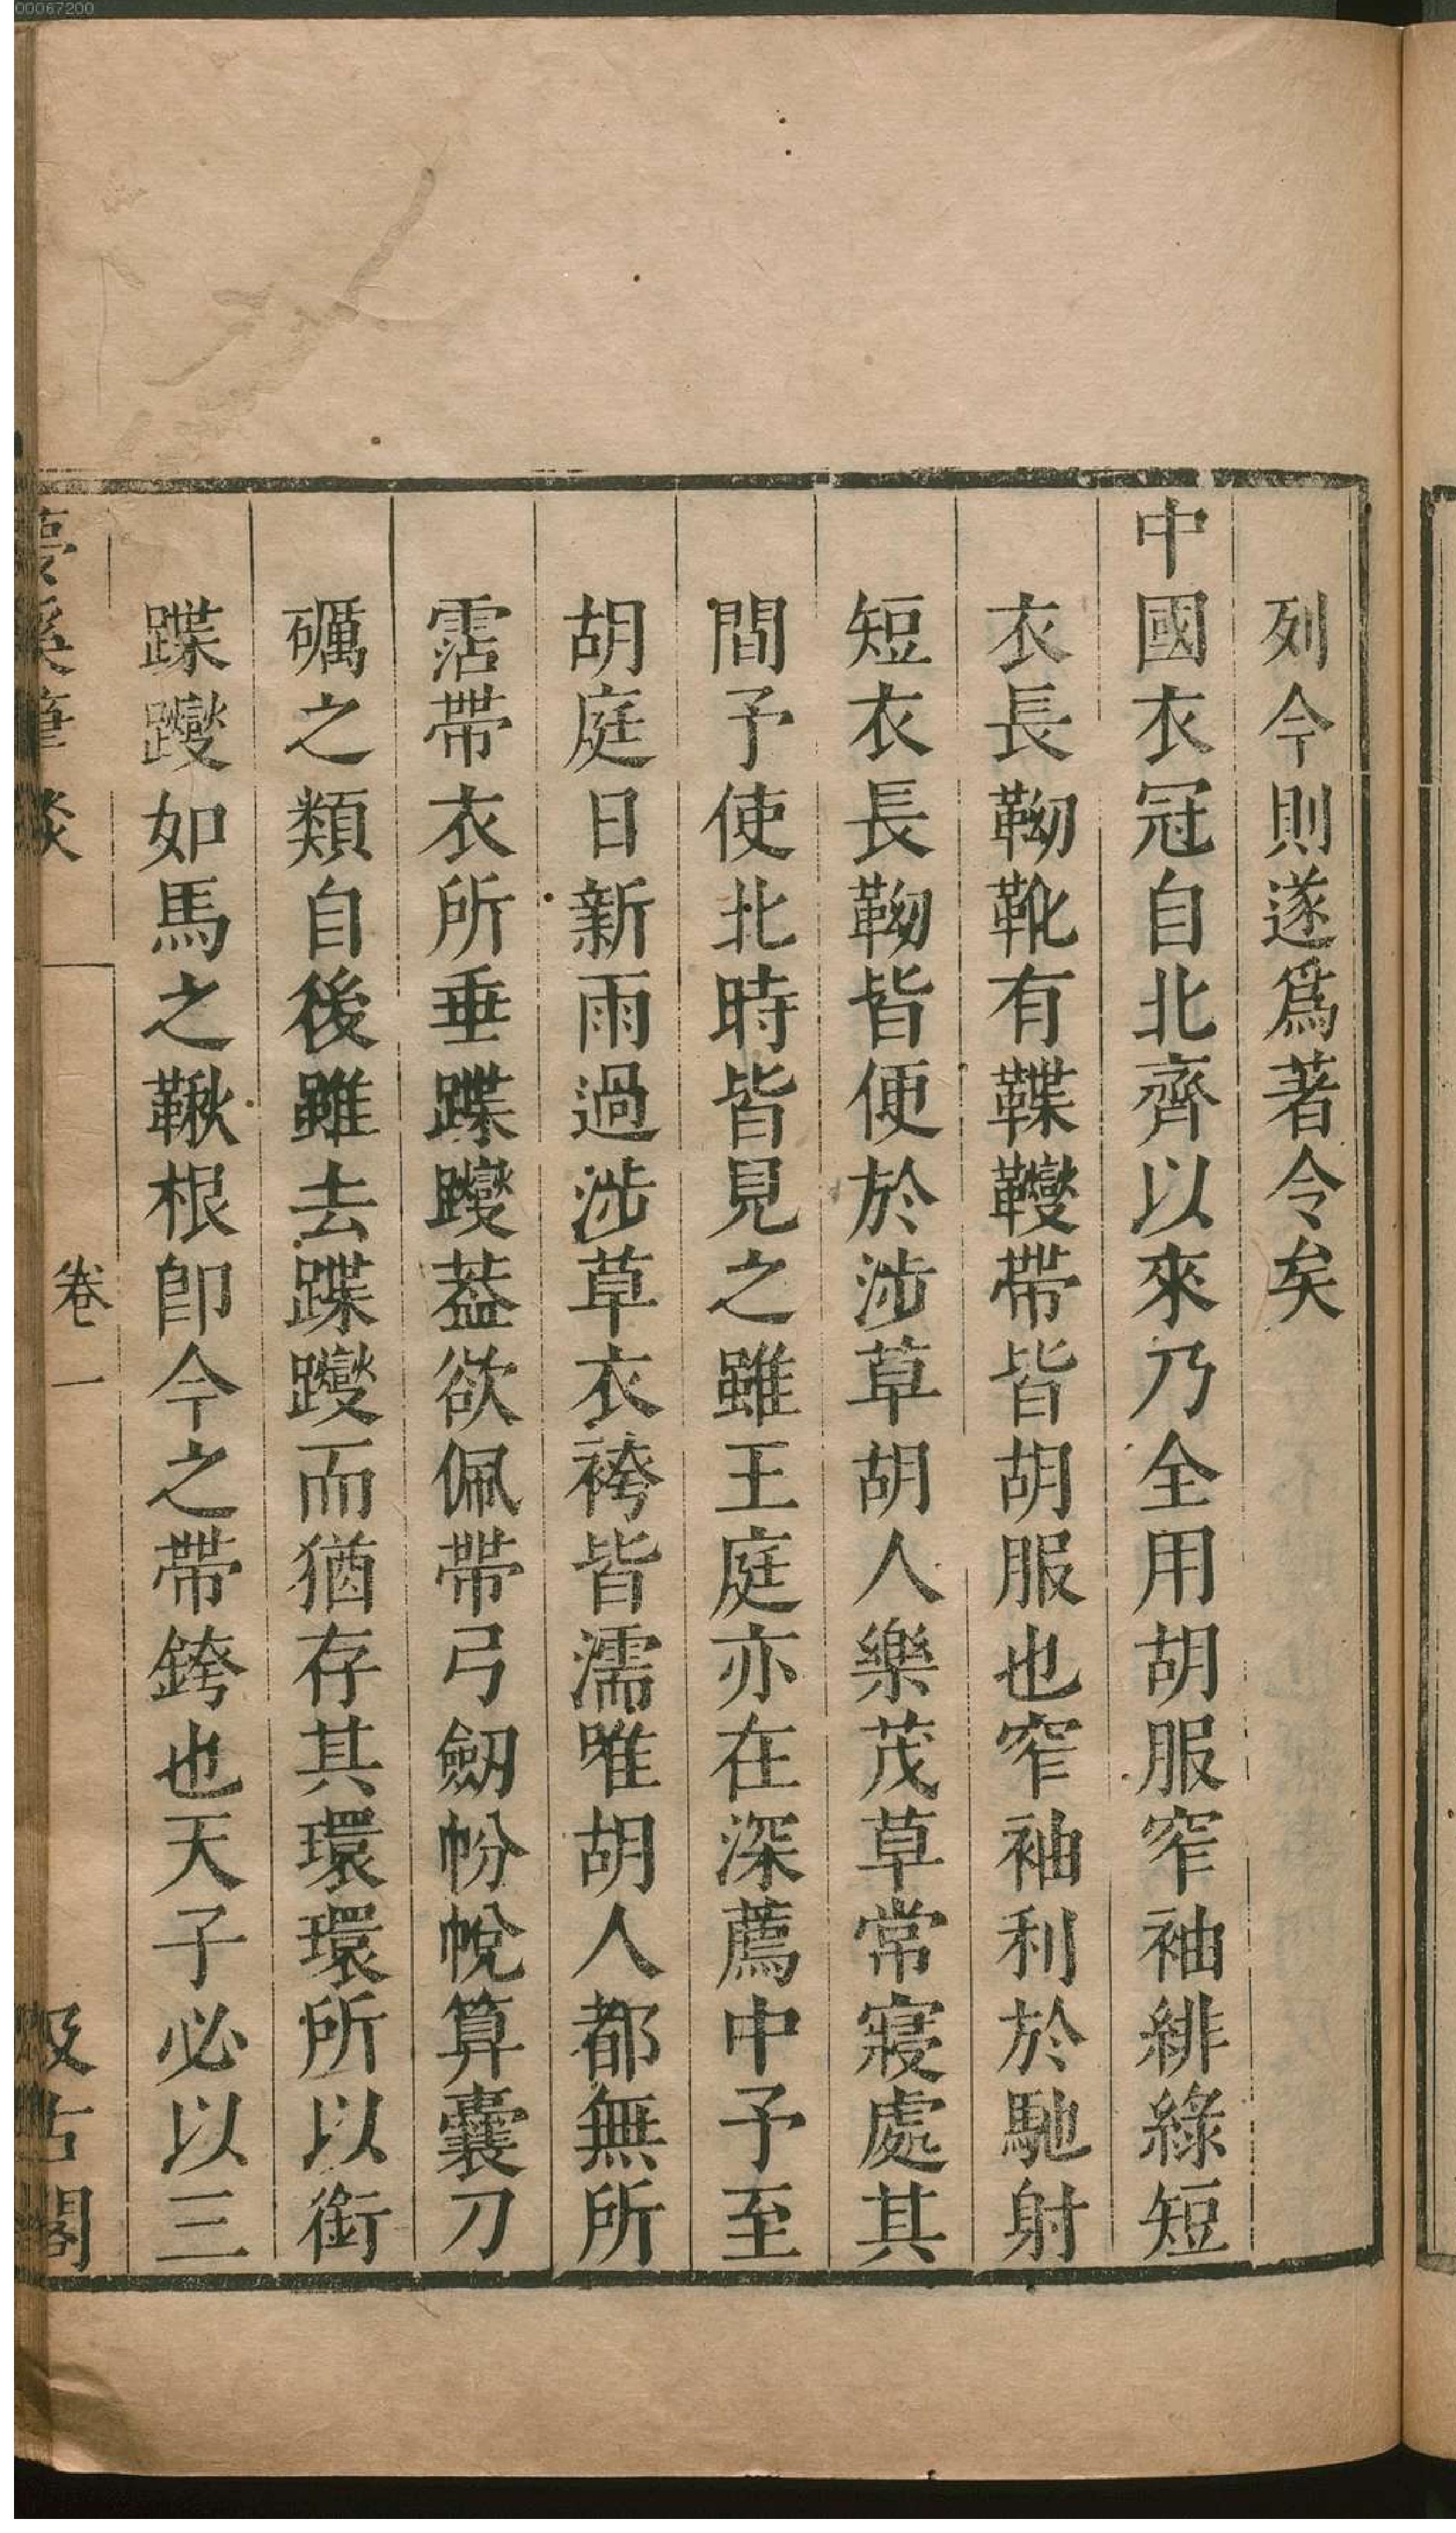 列今則遂爲著令矣
中國衣冠自北齊以來乃全用胡服窄袖緋綠短
衣長靿靴有鞢䪎帶皆胡服也窄袖利於馳射
短衣長靿皆便於涉草胡人樂茂草常寢處其
間予使北時皆見之雖王庭亦在深薦中予至
胡庭日新雨過涉草衣袴皆濡唯胡人都無所
霑帶衣所垂蹀躞葢欲佩帶弓劒帉帨算囊刀
礪之類自後雖去蹀躞而猶存其環環所以銜
蹀躞如馬之鞦根卽今之帶銙也天子必以三
夢溪筆談
卷一
汲古閣
00067200